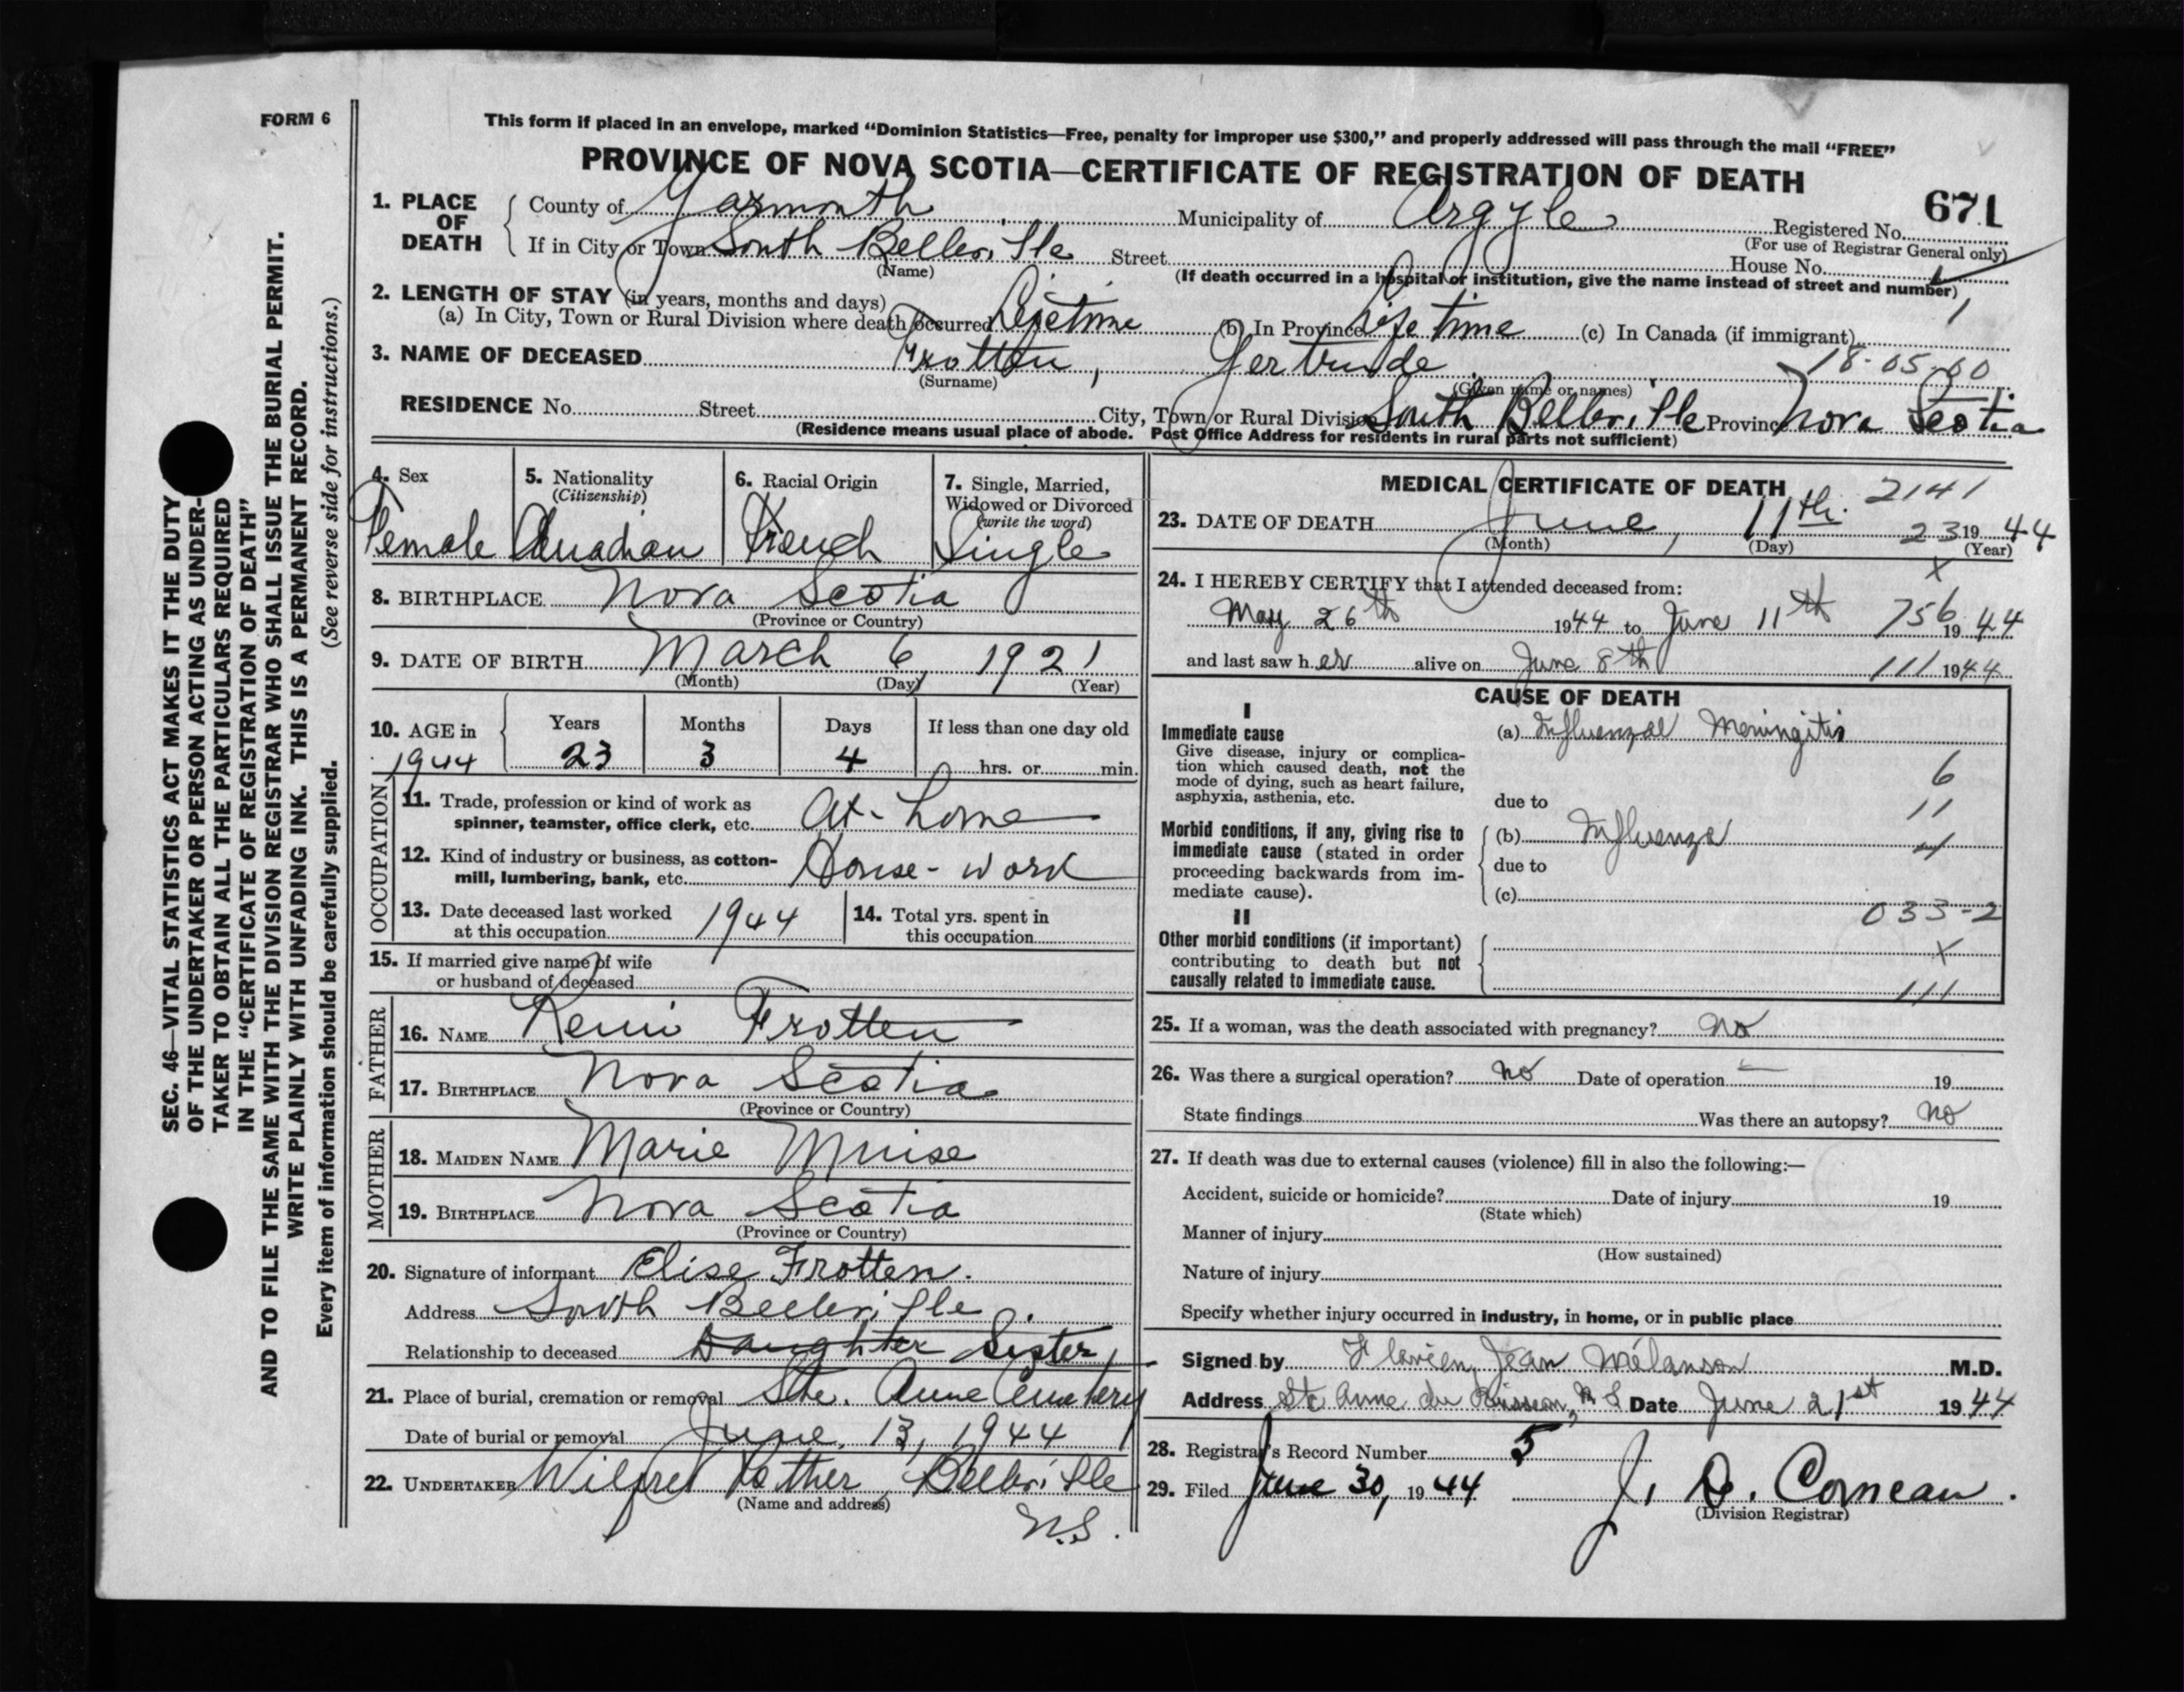 FORM 6
This form if placed in an envelope, marked "Dominion Statistics—Free, penalty for improper use $300," and properly addressed will pass through the mail "FREE"
PROVINCE OF NOVA SCOTIA—CERTIFICATE OF REGISTRATION OF DEATH
671
1. PLACE OF DEATH { County of Yarmouth Municipality of Argyle Registered No.
(For use of Registrar General only)
If in City or Town South Belleville Street House No.
(Name) (If death occurred in a hospital or institution, give the name instead of street and number)
1
2. LENGTH OF STAY (in years, months and days)
(a) In City, Town or Rural Division where death occurred Lifetime (b) In Province Life time (c) In Canada (if immigrant)
3. NAME OF DECEASED Frotten, Gertrude 18-05-60
(Surname) (Given name or names)
RESIDENCE No. Street City, Town or Rural Division South Belleville Province Nova Scotia
(Residence means usual place of abode. Post Office Address for residents in rural parts not sufficient)
4. Sex Female
5. Nationality (Citizenship) Canadian
6. Racial Origin French
7. Single, Married, Widowed or Divorced (write the word) Single
8. BIRTHPLACE Nova Scotia
(Province or Country)
9. DATE OF BIRTH March 6, 1921
(Month) (Day) (Year)
10. AGE in 1944 { Years 23 Months 3 Days 4 If less than one day old
hrs. or min.
OCCUPATION
11. Trade, profession or kind of work as
spinner, teamster, office clerk, etc. At-home
12. Kind of industry or business, as cotton-
mill, lumbering, bank, etc. House-work
13. Date deceased last worked
at this occupation 1944
14. Total yrs. spent in
this occupation
15. If married give name of wife
or husband of deceased
FATHER
16. NAME Remi Frotten
17. BIRTHPLACE Nova Scotia
(Province or Country)
MOTHER
18. MAIDEN NAME Marie Muise
19. BIRTHPLACE Nova Scotia
(Province or Country)
20. Signature of informant Elise Frotten.
Address South Belleville.
Relationship to deceased Daughter Sister,
21. Place of burial, cremation or removal Ste. Anne Cemetery
Date of burial or removal June, 13, 1944
22. UNDERTAKER Wilfred Pothier, Belleville
(Name and address)
N.S.
MEDICAL CERTIFICATE OF DEATH
2141
23. DATE OF DEATH June, 11th. 23 19 44
(Month) (Day) (Year)
X
24. I HEREBY CERTIFY that I attended deceased from:
May 26th 1944 to June 11th 756 19 44
and last saw h er alive on June 8th 111 1944
CAUSE OF DEATH
I
Immediate cause
Give disease, injury or complica-
tion which caused death, not the
mode of dying, such as heart failure,
asphyxia, asthenia, etc.
(a) Influenzal Meningitis
6
due to
11
Morbid conditions, if any, giving rise to
immediate cause (stated in order
proceeding backwards from im-
mediate cause).
(b) Influenza
due to
(c)
033-2
II
Other morbid conditions (if important)
contributing to death but not
causally related to immediate cause.
X
111
25. If a woman, was the death associated with pregnancy? no
26. Was there a surgical operation? no Date of operation — 19
State findings Was there an autopsy? no
27. If death was due to external causes (violence) fill in also the following:—
Accident, suicide or homicide? Date of injury 19
(State which)
Manner of injury
(How sustained)
Nature of injury
Specify whether injury occurred in industry, in home, or in public place
Signed by Flavien Jean Mélanson M.D.
Address Ste Anne du Ruisseau, N S Date June 21st 1944
28. Registrar's Record Number 5
29. Filed June 30, 1944 J. D. Comeau.
(Division Registrar)
SEC. 46—VITAL STATISTICS ACT MAKES IT THE DUTY
OF THE UNDERTAKER OR PERSON ACTING AS UNDER-
TAKER TO OBTAIN ALL THE PARTICULARS REQUIRED
IN THE "CERTIFICATE OF REGISTRATION OF DEATH"
AND TO FILE THE SAME WITH THE DIVISION REGISTRAR WHO SHALL ISSUE THE BURIAL PERMIT.
WRITE PLAINLY WITH UNFADING INK. THIS IS A PERMANENT RECORD.
Every item of information should be carefully supplied. (See reverse side for instructions.)